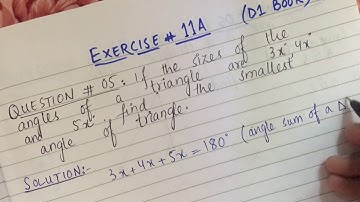 EXERCISE # 11A (D1 BOOK)
QUESTION # 05: If the sizes of the
angles of a triangle are 3x° 4x°
and 5x° find the smallest
angle of triangle.
SOLUTION:- 3x+4x+5x=180° (angle sum of a Δ